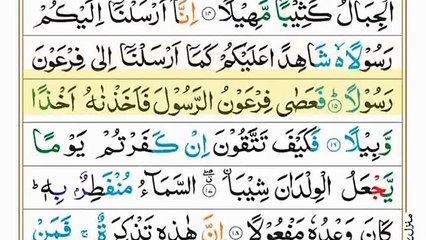 الْجِبَالُ كَثِيْبًا مَّهِيْلًا ۝١٤ اِنَّاۤ اَرْسَلْنَاۤ اِلَيْكُمْ
رَسُوْلًا ۙ۬ شَاهِدًا عَلَيْكُمْ كَمَاۤ اَرْسَلْنَاۤ اِلٰى فِرْعَوْنَ
رَسُوْلًا ؕ۝١٥ فَعَصٰى فِرْعَوْنُ الرَّسُوْلَ فَاَخَذْنٰهُ اَخْذًا
وَّبِيْلًا ۝١٦ فَكَيْفَ تَتَّقُوْنَ اِنْ كَفَرْتُمْ يَوْمًا
يَّجْعَلُ الْوِلْدَانَ شِيْبًا ۝١٧ السَّمَآءُ مُنْفَطِرٌۢ بِهٖ ؕ
كَانَ وَعْدُهٗ مَفْعُوْلًا ۝١٨ اِنَّ هٰذِهٖ تَذْكِرَةٌ ۚ فَمَنْ